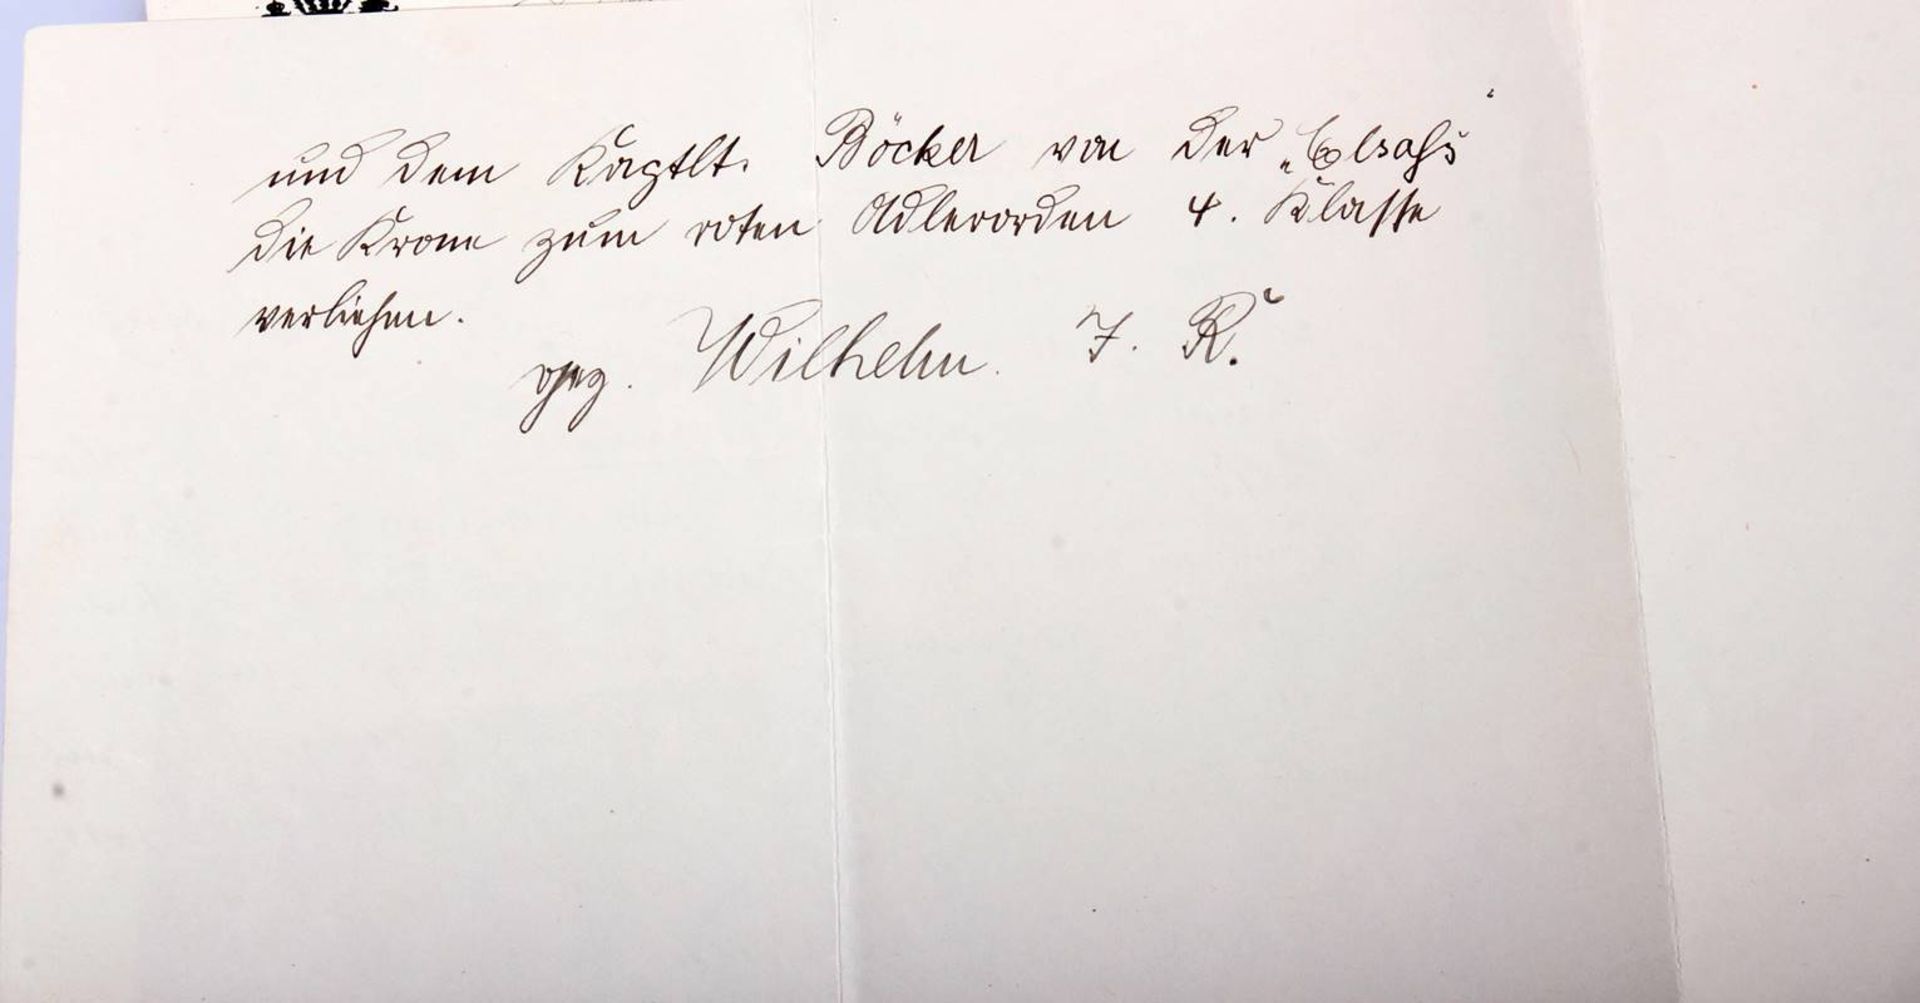 und dem Kaptlt. Böcker von der „Elsaß“
die Krone zum roten Adlerorden 4. Klasse
verliehen.
gez. Wilhelm. I. R.